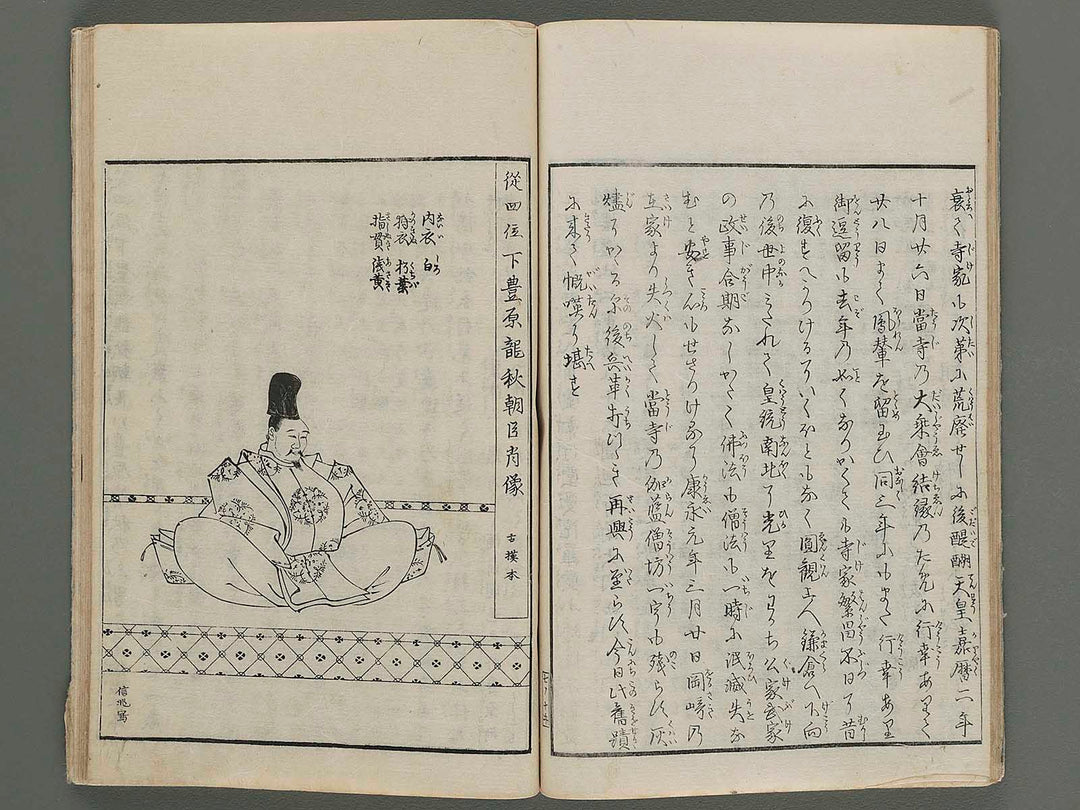 衰へ寺家も次第に荒廃せしに後醍醐天皇嘉暦二年
十月廿六日當寺乃大乗會結縁乃ために行幸ありて
廿八日まで鳳輦を留玉ひ同三年にもまた行幸あり
御逗留も去年乃如くなりかくて寺家繁昌不日に昔
に復すへうけるにいくほともなく圓観上人鎌倉へ下向
乃後世中みたれて皇統南北に光りをわかち公家武家
の政事合期なしかたく佛法も僧法も一時に泯滅失な
むと安きんもせさりけるなり康永元年三月廿日岡崎乃
在家より失火して當寺乃伽藍僧坊一宇も残らす灰
燼にかゝる尓後兵革打つゝき再興に至らす今日此舊蹟
に来て慨嘆に堪す
従四位下豊原龍秋朝臣肖像
古摸本
内衣 白
狩衣 朽葉
指貫 浅黄
信兆寫